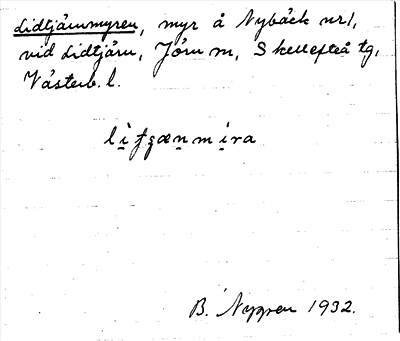 Lidtjärnmyren, myr å Nybäck nr 1,
vid Lidtjärn, Jörn m, Skellefteå tg,
Västerb. l.
B. Nygren 1932.